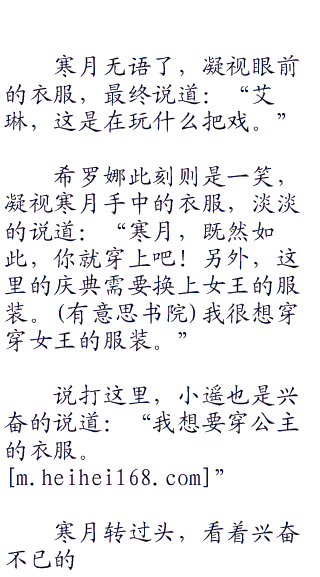 寒月无语了，凝视眼前
的衣服，最终说道：“艾
琳，这是在玩什么把戏。”
希罗娜此刻则是一笑，
凝视寒月手中的衣服，淡淡
的说道：“寒月，既然如
此，你就穿上吧！另外，这
里的庆典需要换上女王的服
装。(有意思书院)我很想穿
穿女王的服装。”
说打这里，小遥也是兴
奋的说道：“我想要穿公主
的衣服。
[m.heihei168.com]”
寒月转过头，看着兴奋
不已的